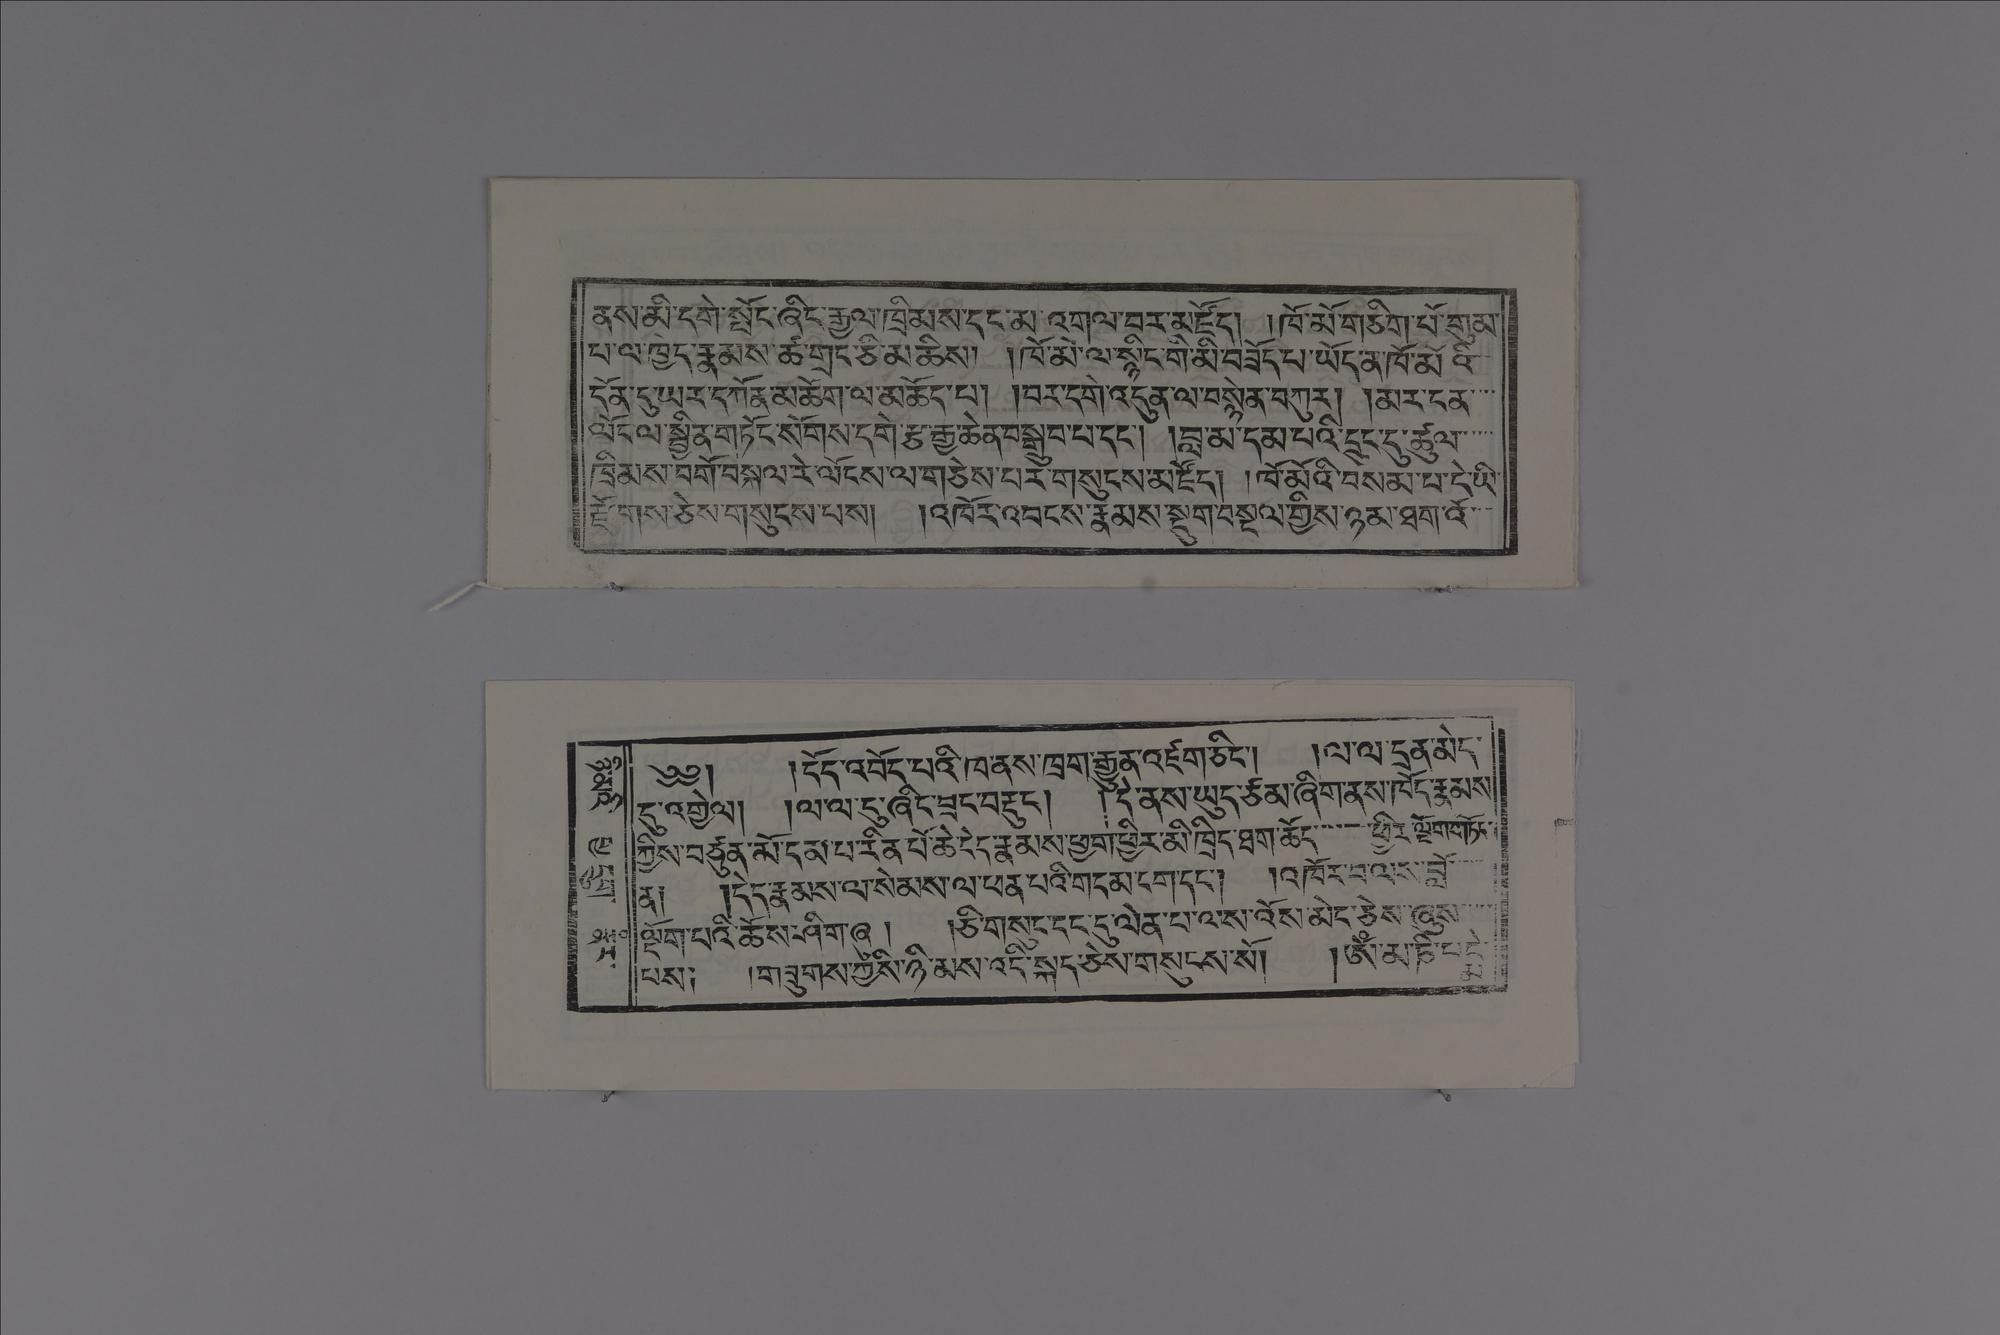 ནས་མི་དགེ་སྤོང་ཞིང་རྒྱལ་ཁྲིམས་དང་མ་འགལ་བར་མཛོད། །ཁོ་མོ་གཅིག་པོ་གྲུམ་
པ་ལ་ཁྱེད་རྣམས་ཚ་གྲང་ཅི་མ་ཆིས། །ཁོ་མོ་ལ་སྙིང་གི་མི་བཟོད་པ་ཡོད་ན་ཁོ་མོ་འི་
དོན་དུ་ཡར་དཀོན་མཆོག་ལ་མཆོད་པ། །བར་དགེ་འདུན་ལ་བསྙེན་བཀུར། །མར་ངན་
ལོང་ལ་སྦྱིན་གཏོང་སོགས་དགེ་རྩ་རྒྱ་ཆེན་བསྒྲུབ་པ་དང་། །བླ་མ་དམ་པའི་དྲུང་དུ་ཚུལ་
ཁྲིམས་བགོ་བསྐལ་རེ་ལོངས་ལ་གཅེས་པར་གསུངས་མཛོད། །ཁོ་མོའི་བསམ་པ་དེ་ཡི་
རྫོགས་ཅེས་གསུངས་པས། །འཁོར་འབངས་རྣམས་སྡུག་བསྔལ་གྱིས་ཉམ་ཐག་འོ་
༄༅། །དོད་འབོད་པའི་ཁ་ནས་ཁྲག་རྒྱུན་འཛག་ཅིང་། །ལ་ལ་དྲན་མེད་
དུ་འགྱེལ། །ལ་ལ་དུ་ཞིང་བྲང་བརྡུང་། །དེ་ནས་ཡུད་ཙམ་ཞིག་ནས་ཁོད་རྣམས་
ཀྱིས་བཙུན་མོ་དམ་པ་རིན་པོ་ཆེ་ངེད་རྣམས་ཕྱག་ཕྱིར་མི་ཁྲིད་ཐག་ཆོད་ ཕྱིར་ལྡོག་གཏོ་
ན། །ངེད་རྣམས་ལ་སེམས་ལ་ཕན་པའི་གདམ་ངག་དང་། །འཁོར་བ་ལས་བློ་
ལྡོག་པའི་ཆོས་ཤིག་ཞུ །ཅི་གསུང་དང་དུ་ལེན་པ་ལས་འོས་མེད་ཅེས་ཞུས་
པས། །གཟུགས་ཀྱི་ཉི་མས་འདི་སྐད་ཅེས་གསུངས་སོ། །ཨོཾ་མ་ཎི་པདྨེ